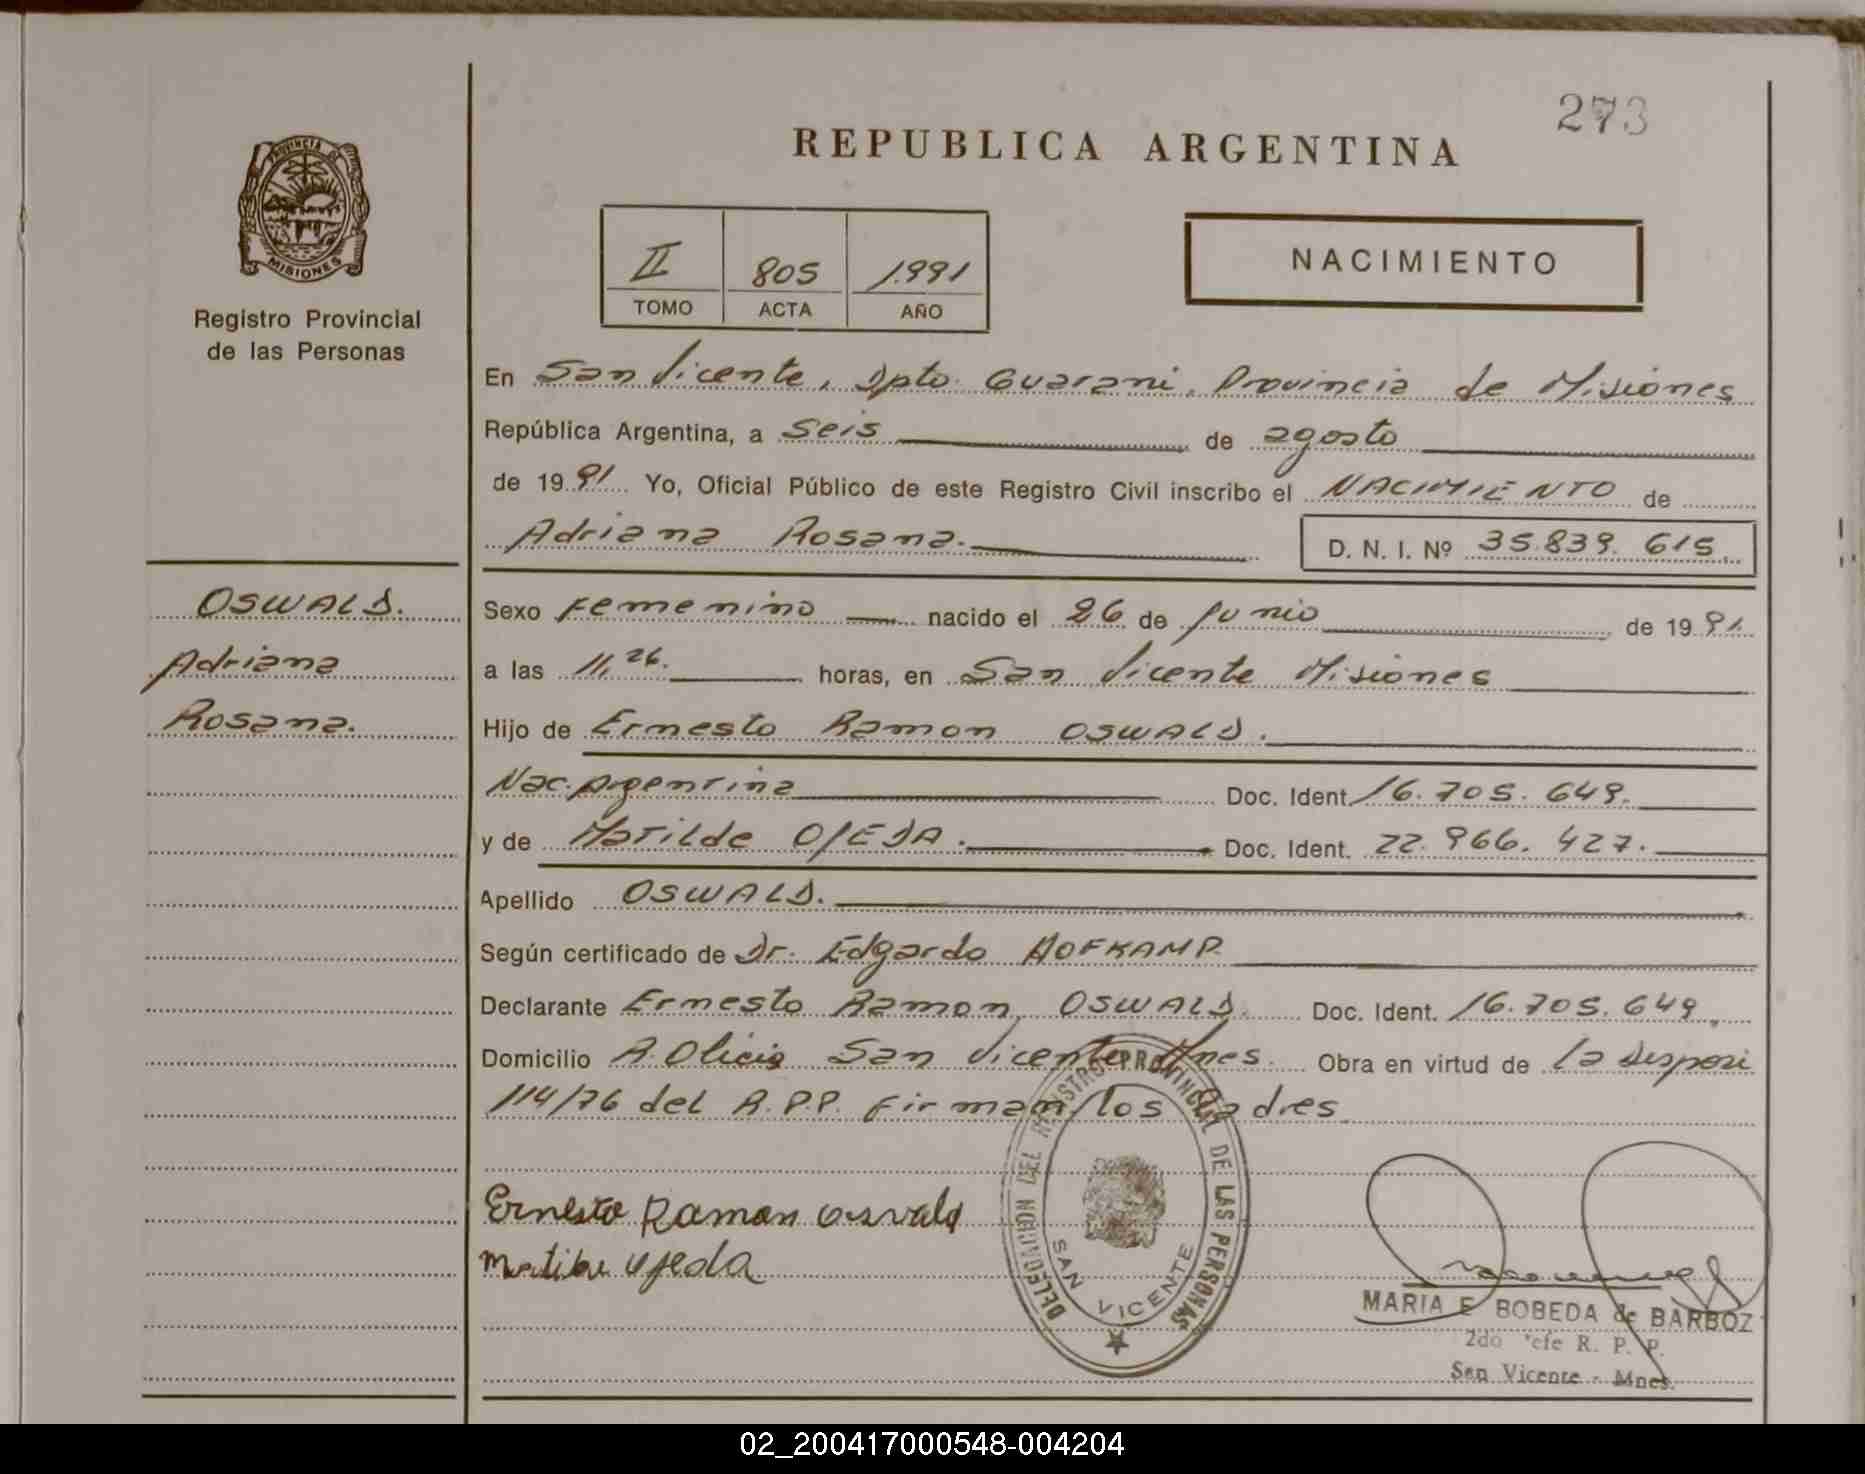 273
REPUBLICA ARGENTINA
PROVINCIA DE
MISIONES
Registro Provincial
de las Personas
II 805 1.991
TOMO ACTA AÑO
NACIMIENTO
En San Vicente, Dpto. Guarani, Provincia de Misiones
República Argentina, a Seis de agosto
de 1991 Yo, Oficial Público de este Registro Civil inscribo el NACIMIENTO de
Adriana Rosana. D. N. I. Nº 35.839.615
OSWALD.
Adriana
Rosana.
Sexo Femenino nacido el 26 de Junio de 1991.
a las 11,26. horas, en San Vicente Misiones
Hijo de Ernesto Ramon OSWALD.
Nac. Argentina Doc. Ident. 16.705.649.
y de Matilde OJEDA. Doc. Ident. 22.966.427.
Apellido OSWALD.
Según certificado de Dr. Edgardo HOFKAMP.
Declarante Ernesto Ramon OSWALD. Doc. Ident. 16.705.649.
Domicilio A. Olicia San Vicente Mnes. Obra en virtud de la Disposi
114/76 del R.P.P. Firman los Padres
Ernesto Ramon Oswald
Matilde Ojeda
DELEGACION DEL REGISTRO PROVINCIAL DE LAS PERSONAS
SAN VICENTE
MARIA E BOBEDA de BARBOZ
2do Jefe R. P. P.
San Vicente - Mnes.
02_200417000548-004204